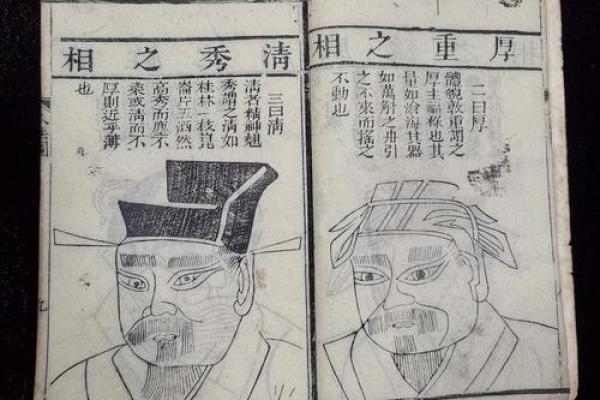 厚重之相
二曰厚
體貌敦重謂之
厚主福祿也其
量如滄海其器
如萬斛之舟引
之不來而搖之
不動也
淸秀之相
三曰淸
淸者精神翹
秀謂之淸如
桂林一枝崑
崙片玉洒然
高秀而塵不
染或淸而不
厚則近乎薄
也
九